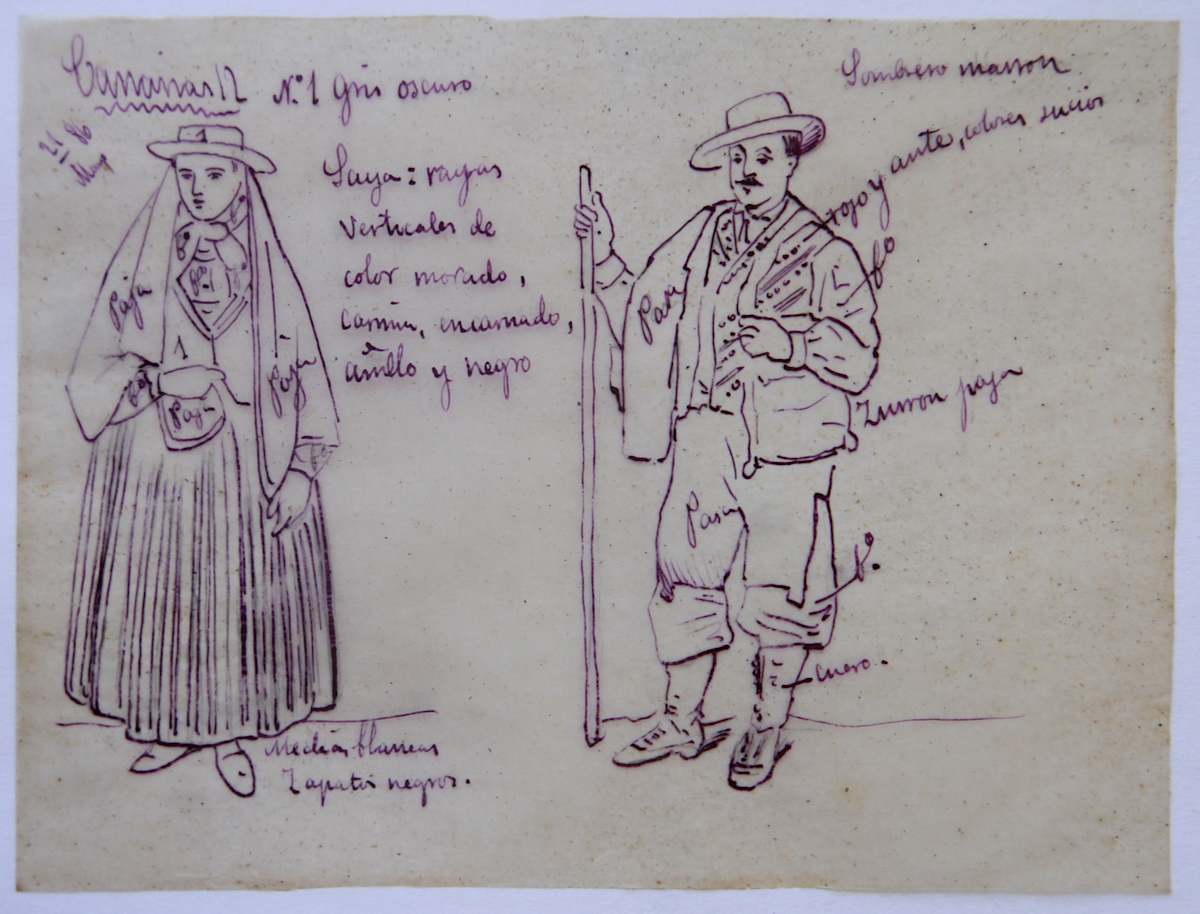 Canarias 12
Nº1 gris oscuro
21
Saya: rayas
verticales de
color morado,
carmin, encarnado,
y negro
1
bº
bº
Paja
Paja
1
Paja
Medias blancas
Zapatos negros.
Sombrero marron
rojo y ante, colores sucios
bº
Paja
Zurron paja
Paja
bº
cuero.